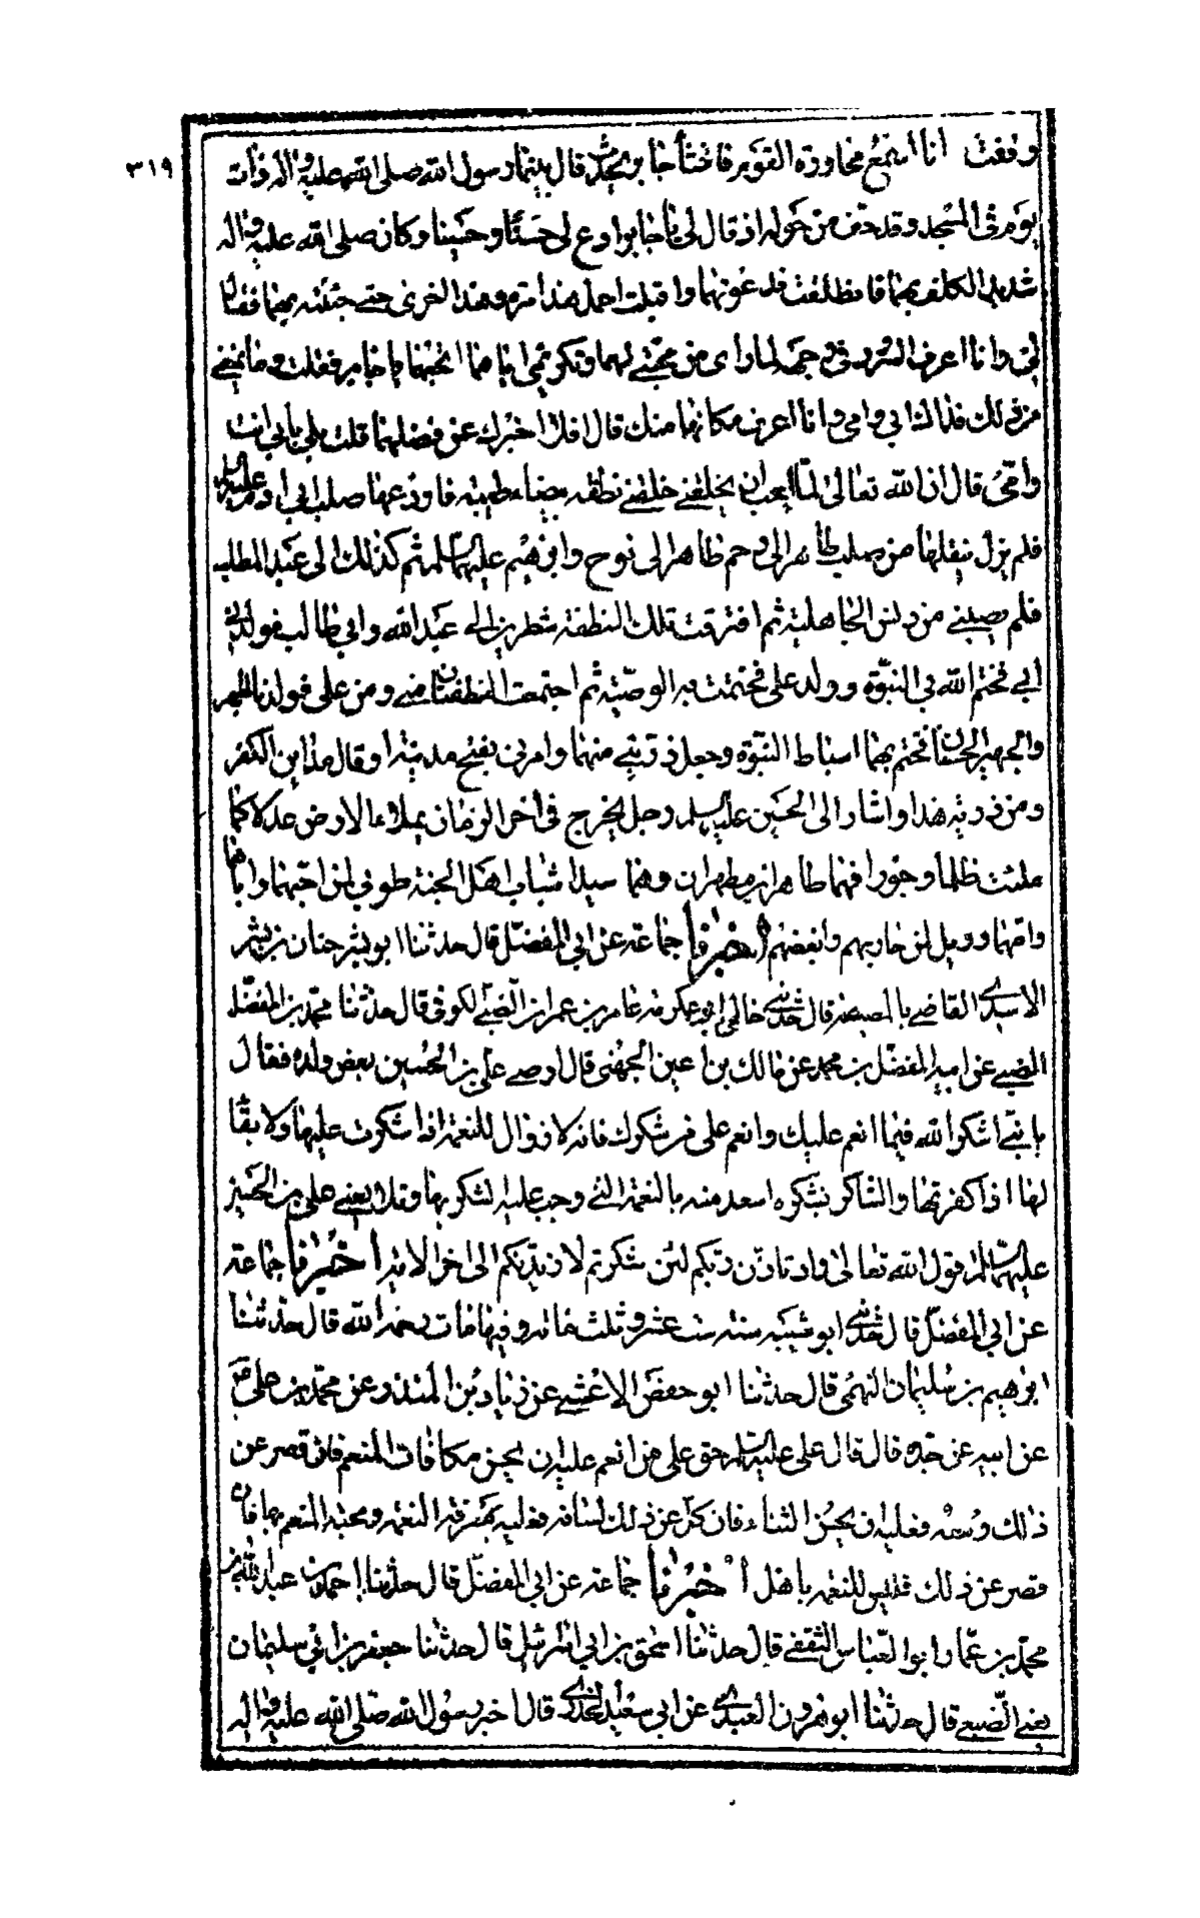 ٣١٩
وقفت انا اسمع محاورة القوم فانشأ جابر يحدث قال بينما رسول الله صلى الله عليه واله ذات
يوم في المسجد وقد حف من حوله اذ قال لي يا جابر ادع لي حسنًا وحسينا وكان صلى الله عليه واله
شديد الكلف بهما فانطلقت فدعوتهما واقبلت احمل هذا مرة وهذا اخرى حتى جئته بهما فقال
لي وانا اعرف السرور في وجهه لما راى من محبتي لهما وتكرمي اياهما اتحبهما يا جابر فقلت وما يمنعني
من ذلك فداك ابي وامي وانا اعرف مكانهما منك قال افلا اخبرك عن فضلهما قلت بلى بابي انت
وامي قال ان الله تعالى لما احب ان يخلقني خلقني نطفة بيضاء طيبة فاودعها صلب ابي ادم عليه السلام
فلم يزل ينقلها من صلب طاهر الى رحم طاهر الى نوح وابرهيم عليهما السلم ثم كذلك الى عبد المطلب
فلم يصبني من دنس الجاهلية ثم افترقت تلك النطفة شطرين الى عبد الله وابي طالب فولدني
ابي فختم الله بي النبوة وولد علي فختمت به الوصية ثم اجتمعت النطفتان مني ومن علي فولدنا الجهر
والجهير الحسنان فختم بهما اسباط النبوة وجعل ذريتي منهما وامرني بفتح مدينة او قال مداين الكفر
ومن ذرية هذا واشار الى الحسين عليه السلم رجل يخرج في اخر الزمان يملأ الارض عدلا كما
ملئت ظلما وجورا فهما طاهران مطهران وهما سيدا شباب اهل الجنة طوبى لمن احبهما واباهما
وامهما وويل لمن حاربهم وابغضهم اخبرنا جماعة عن ابي المفضل قال حدثنا ابو بشر حنان بن بشر
الاسدي القاضي بالمصيصة قال حدثني خالي ابو عكرمة عامر بن عمران الضبي الكوفي قال حدثنا محمد بن المفضل
الضبي عن ابيه المفضل بن محمد عن مالك بن اعين الجهني قال اوصى علي بن الحسين بعض ولده فقال
يا بني اشكر الله فيما انعم عليك وانعم على من شكرك فانه لا زوال للنعمة اذا شكرت عليها ولا بقاء
لها اذا كفرتها والشاكر بشكره اسعد منه بالنعمة التي وجب عليه الشكر بها وتلا يعني علي بن الحسين
عليهما السلم قول الله تعالى واذ تاذن ربكم لئن شكرتم لازيدنكم الى اخر الاية اخبرنا جماعة
عن ابي المفضل قال حدثني ابو شيبة سنة ست عشر وثلث مائة وفيها مات رحمه الله قال حدثنا
ابرهيم بن سليمان النهمي قال حدثنا ابو حفص الاعشى عن زياد بن المنذر عن محمد بن علي
عن ابيه عن جده قال قال علي عليه السلم حق على من انعم عليه ان يحسن مكافات المنعم فان قصر عن
ذلك وسعه فعليه ان يحسن الثناء فان كل عن ذلك لسانه فعليه بمعرفة النعمة ومحبة المنعم بها فان
قصر عن ذلك فليس للنعمة باهل اخبرنا جماعة عن ابي المفضل قال حدثنا احمد بن عبد الله بن
محمد بن عمار ابو العباس الثقفي قال حدثنا اسحق بن ابي اسرائيل قال حدثنا جعفر بن ابي سليمان
يعني الضبعي قال حدثنا ابو هرون العبدي عن ابي سعيد الخدري قال اخبر رسول الله صلى الله عليه واله